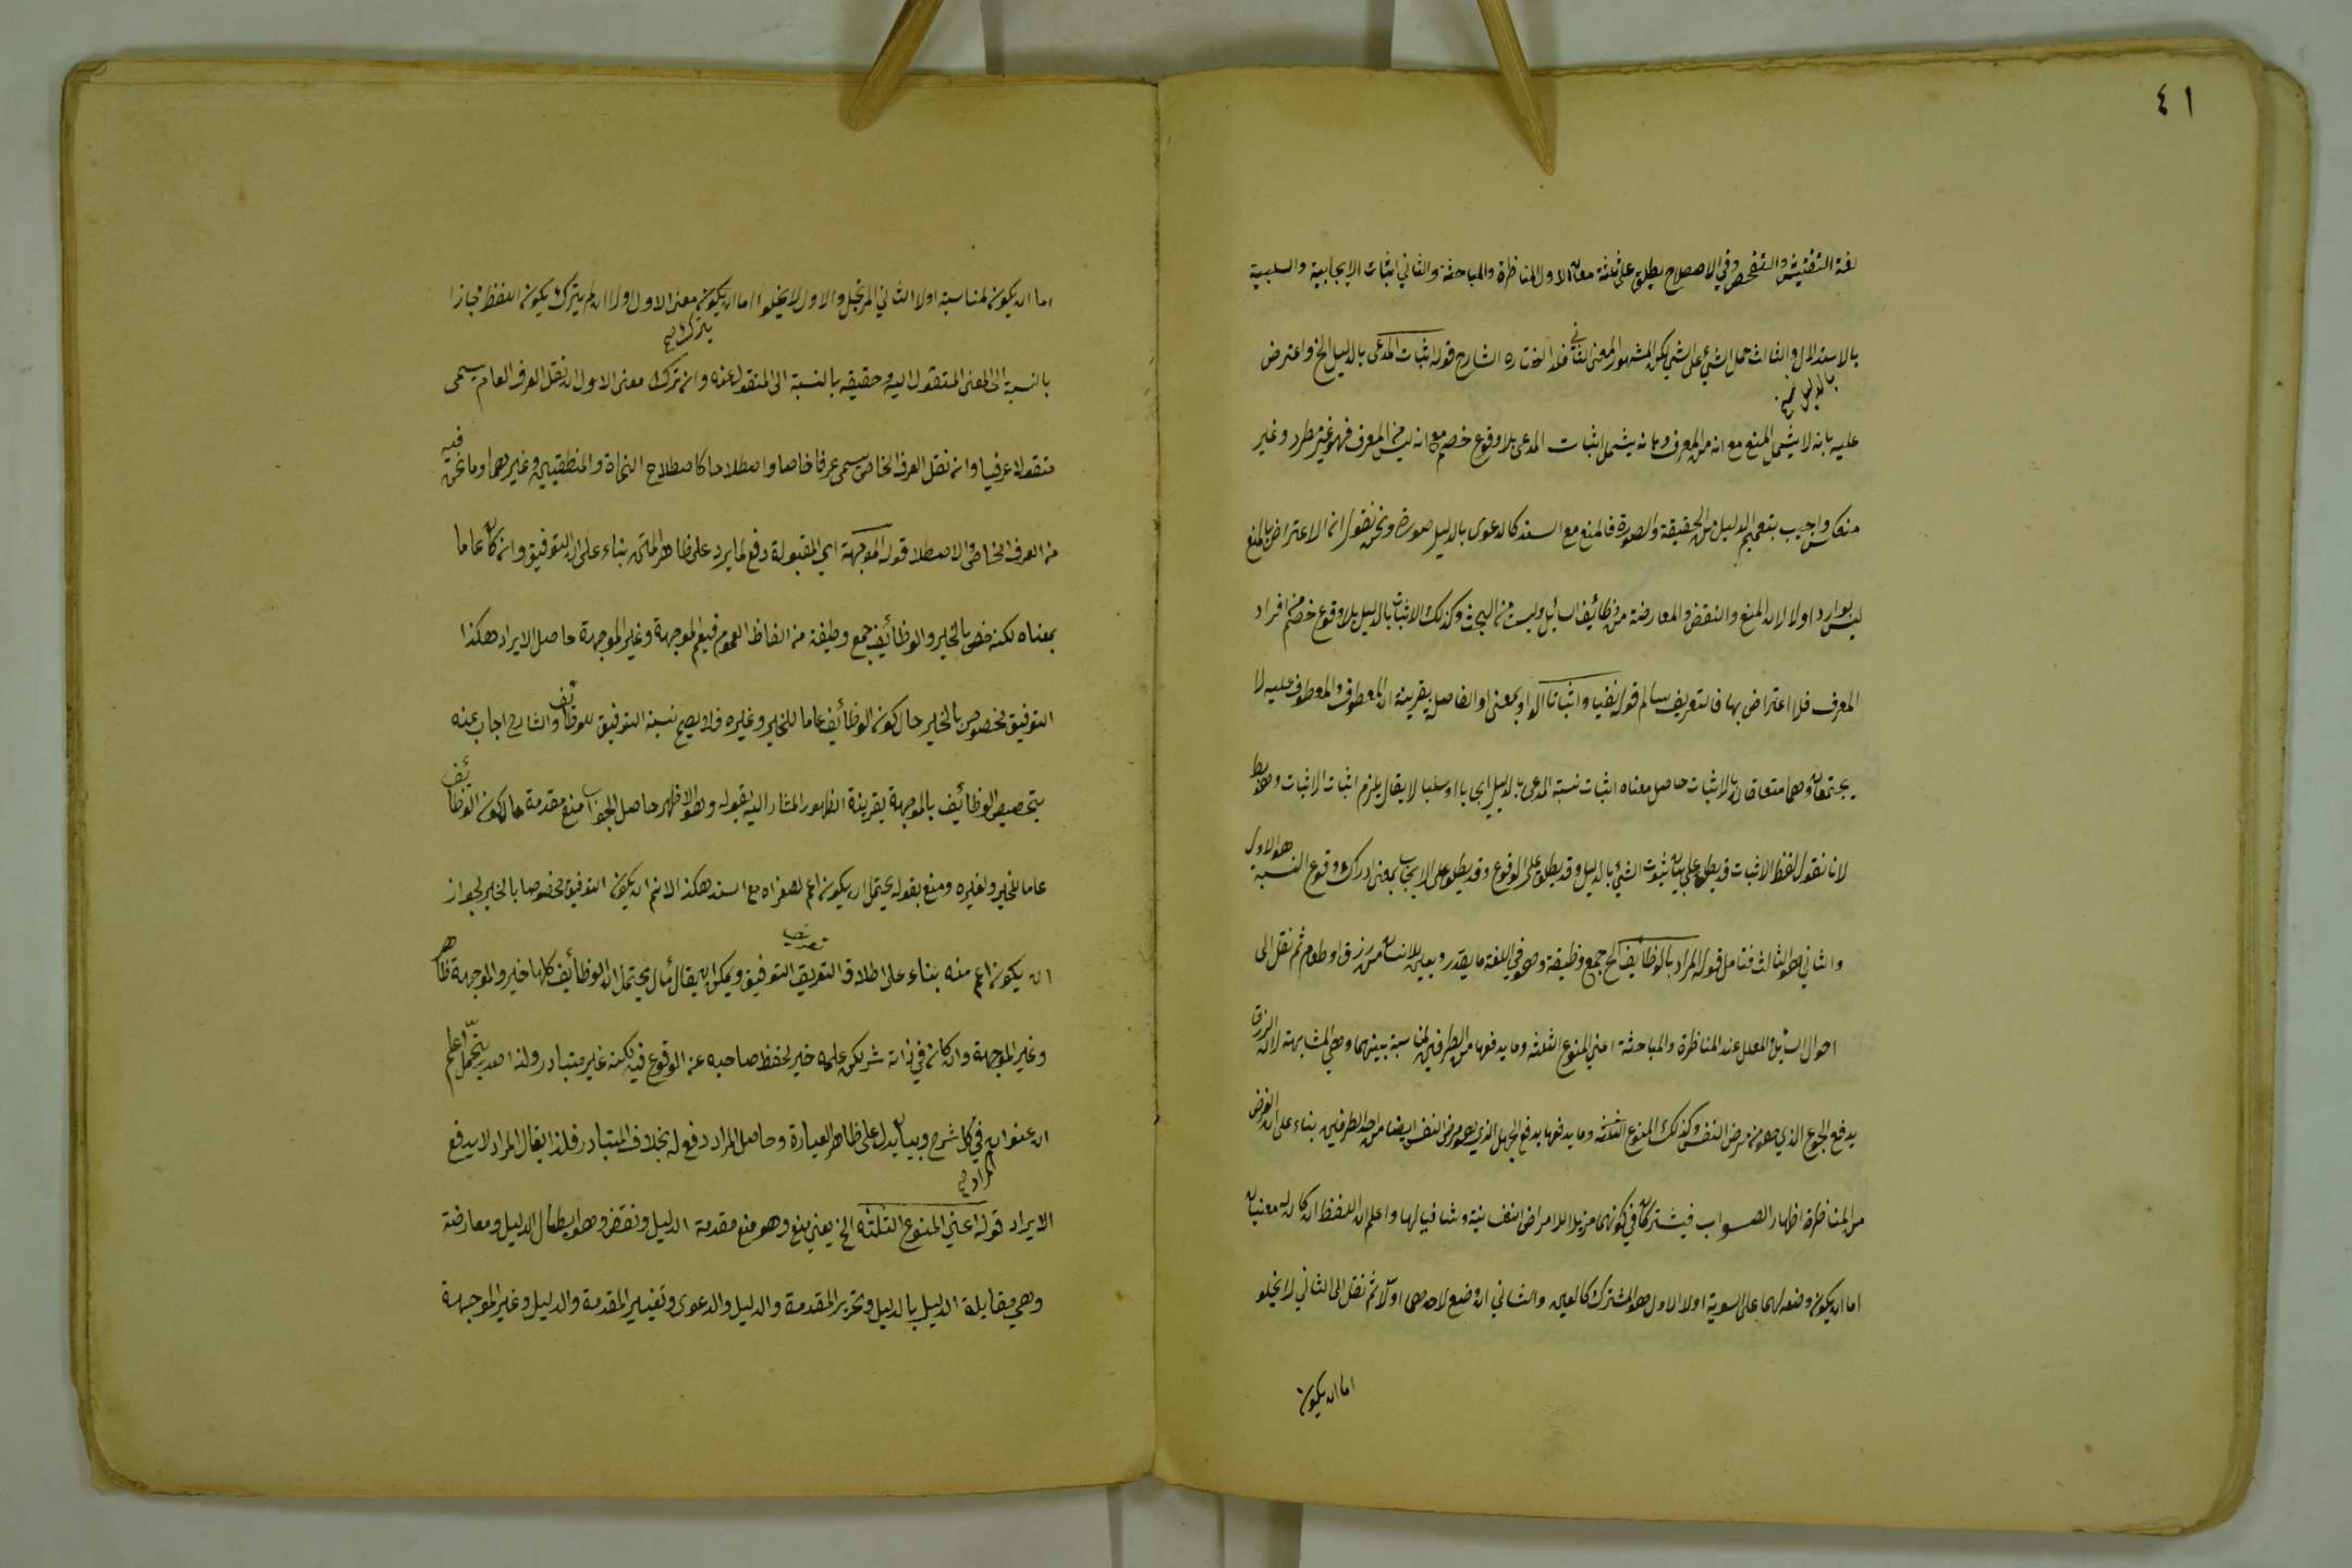 ٤١
لغة التفتيش والتفحص وفي الاصطلاح يطلق على ثلثة معان الاول المناظرة والمباحثة والثاني اثبات الايجابية والسلبية
بالاستدلال والثالث حمل الشيء على الشيء لكن المشهور المعنى الثاني فلذا اختاره الشارح قوله اثبات المدعى بالدليل الخ واعترض
بالدليل صح
عليه بانه لا يشمل المنع مع انه من المعرف وبانه يشمل اثبات المدعى بلا وقوع خصم مع انه ليس من المعرف فهو غير مطرد وغير
منعكس واجيب بتعميم الدليل من الحقيقة والصورة فالمنع مع السند كالدعوى بالدليل صورة ونحن نقول ان الاعتراض بالمنع
ليس بوارد اولا لان المنع والنقض والمعارضة من وظائف السائل وليست من البحث وكذلك الاثبات بالدليل بلا وقوع خصم من افراد
المعرف فلا اعتراض بها فالتعريف سالم قوله نفيا واثباتا الواو بمعنى او الفاصل بقرينة ان المعطوف والمعطوف عليه لا
يجتمعان وهما متعلقان بالاثبات حاصل معناه اثبات نسبة المدعى بالدليل ايجابا او سلبا لا يقال يلزم اثبات الاثبات وهو باطل
لانا نقول لفظ الاثبات قد يطلق على بيان ثبوت الشيء بالدليل وقد يطلق على الوقوع وقد يطلق على الايجاب بمعنى ادراك وقوع النسبة هو الاول
والثاني هو الثالث فتامل قوله المراد بالوظائف الخ جمع وظيفة وهو في اللغة ما يقدر ويعين للانسان من رزق او طعام ثم نقل الى
احوال السائل والمعلل عند المناظرة والمباحثة اعني المنوع الثلثة وما يدفعها من الطرفين لمناسبة بينهما وهي المشابهة لان الرزق
يدفع الجوع الذي هو من مرض النفس كذلك المنوع الثلثة وما يدفعها يدفع الجهل الذي هو مرض النفس ايضا من احد الطرفين بناء على ان الغرض
من المناظرة اظهار الصواب فيشتركان في كونهما مزيلا للامراض النفسانية وشافيا لها واعلم ان اللفظ ان كان له معنيان
اما ان يكون وضعه لهما على السوية اولا الاول هو المشترك كالعين والثاني ان وضع لاحدهما اولا ثم نقل الى الثاني لا يخلو
اما ان يكون
اما ان يكون لمناسبة اولا الثاني المرتجل والاول لا يخلو اما ان يكون معنى الاول اولا ان لم يترك يكون اللفظ مجازا
يترك صح
بالنسبة الى المعنى المنقول اليه وحقيقه بالنسبة الى المنقول عنه وان ترك معنى الاول ان نقل العرف العام يسمى
منقولا عرفيا وان نقل العرف الخاص يسمى عرفا خاصا واصطلاحا كاصطلاح النحاة والمنطقيين وغيرهما وما نحن فيه
من العرف الخاص الاصطلا قوله الموجهة اي المقبولة دفع لما يرد على ظاهر المتن بناء على ان التوفيق وان كان عاما
بمعناه لكنه خص بالخير والوظائف جمع وظيفة من الفاظ العموم فيعم الموجهة وغير الموجهة حاصل الايراد هكذا
التوفيق مخصوص بالخير حال كون الوظائف عاما للخير وغيره فلا يصح نسبة التوفيق للوظائف والشارح اجاب عنه
بتحصيص الوظائف بالموجهة بقرينة الظهور المشار اليه بقوله وهو الاظهر حاصل الجواب منع مقدمة حال كون الوظائف
عاما للخير ولغيره ومنع بقوله يحتمل ان يكون اعم لصغراه مع السند هكذا لانم ان يكون التوفيق مخصوصا بالخير لجواز
ان يكون اعم منه بناء على اطلاق التعريف التوفيق ويمكن ان يقال يحتمل ان الوظائف كلها خير والموجهة ظاهر
وغير الموجهة وان كان في ذاته شر لكن علمه خير لحفظ صاحبه عن الوقوع فيه لكنه غير متبادر ولذا صدر بيحتمل اعلم
ان عنوانه في كل شرح وبيان يدل على ظاهر العبارة وحاصل المراد دفع له بخلاف المتبادر فلذا يقال المراد لا يدفع
المراد صح
الايراد قوله اعني المنوع الثلثة الخ يعني منع وهو منع مقدمة الدليل ونقض وهو ابطال الدليل ومعارضة
وهي مقابلة الدليل بالدليل وتحرير المقدمة والدليل والدعوى وتغيير المقدمة والدليل وغير الموجهة